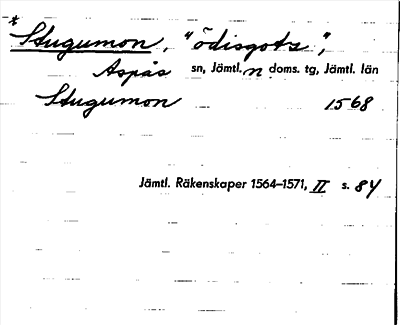 * Stugumon, "ödisgots",
Aspås sn, Jämtl. n doms. tg, Jämtl. län
Stugumon 1568
Jämtl. Räkenskaper 1564–1571, II s. 84